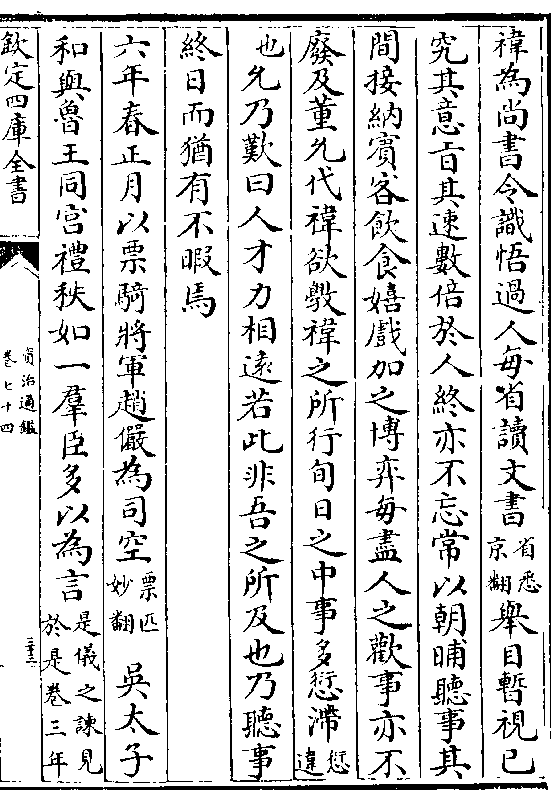 禕為尚書令識悟過人每省讀文書省悉京翻舉目暫視已
究其意旨其速數倍於人終亦不忘常以朝晡聽事其
間接納賓客飲食嬉戲加之博弈每盡人之歡事亦不
廢及董允代禕欲斆禕之所行旬日之中事多愆滯愆違
也允乃歎曰人才力相遠若此非吾之所及也乃聽事
終日而猶有不暇焉
六年春正月以票騎將軍趙儼為司空票匹妙翻吳太子
和與魯王同宮禮秩如一羣臣多以為言是儀之諫見於是卷三年
欽定四庫全書
資治通鑑
卷七十四
三十三